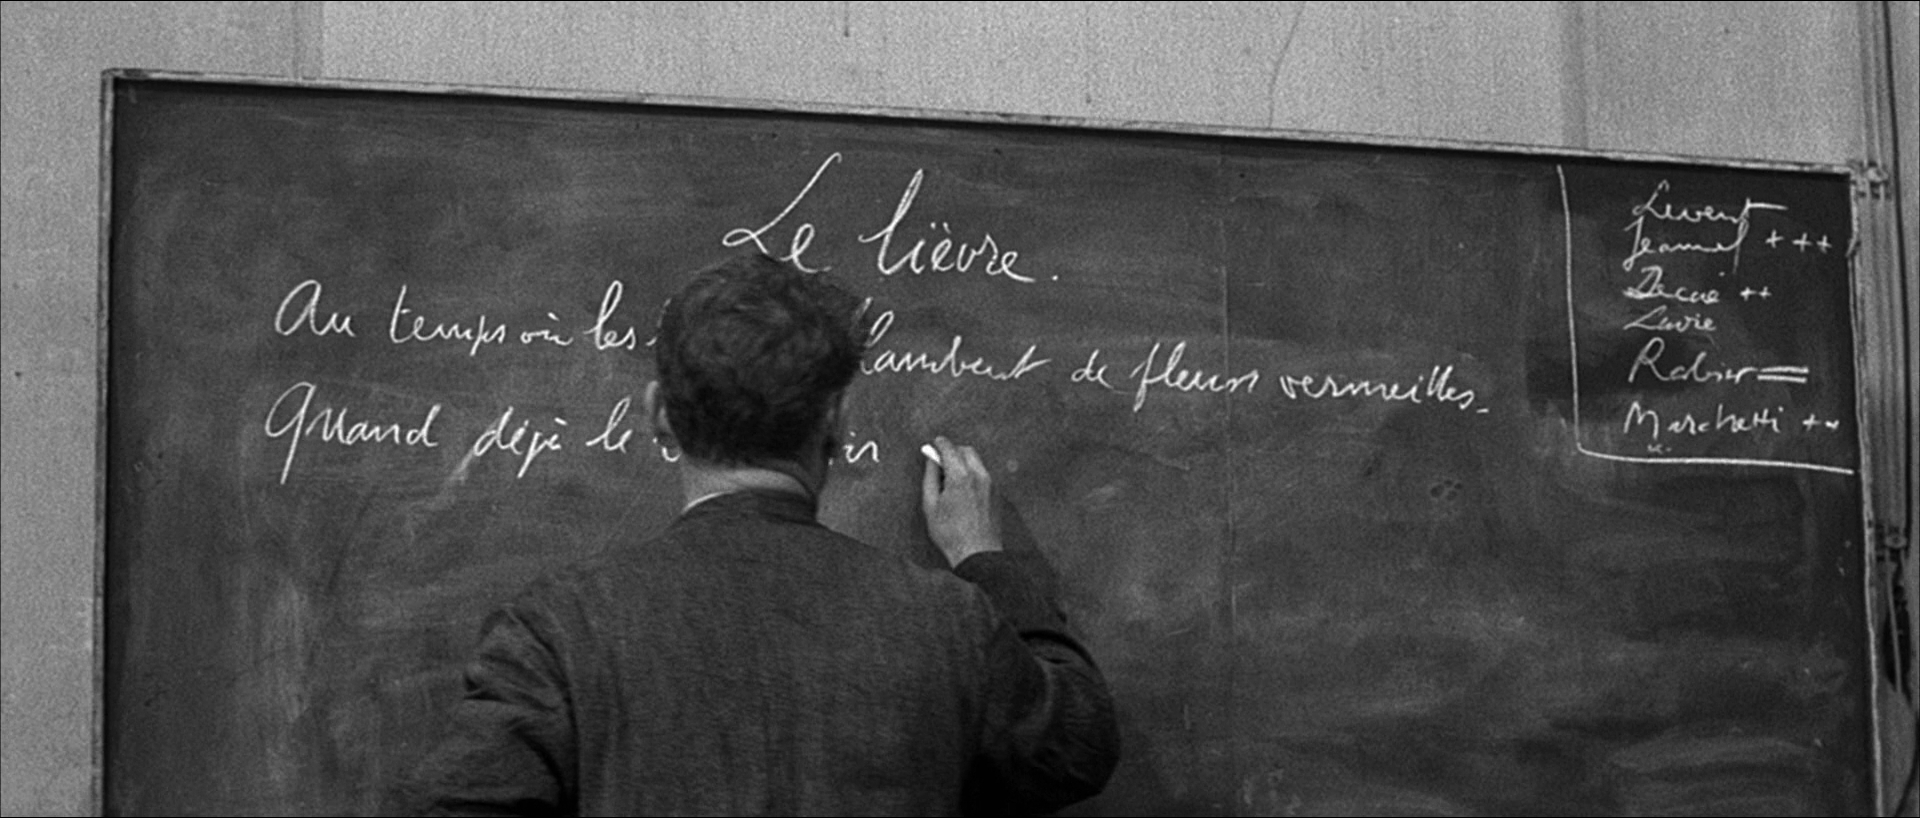 Le lièvre.
Au temps où les lambent de fleurs vermeilles.
Quand déjà le ir
Levent
Jeannel +++
Decaë ++
Lavie
Rabier =
Marchetti ++